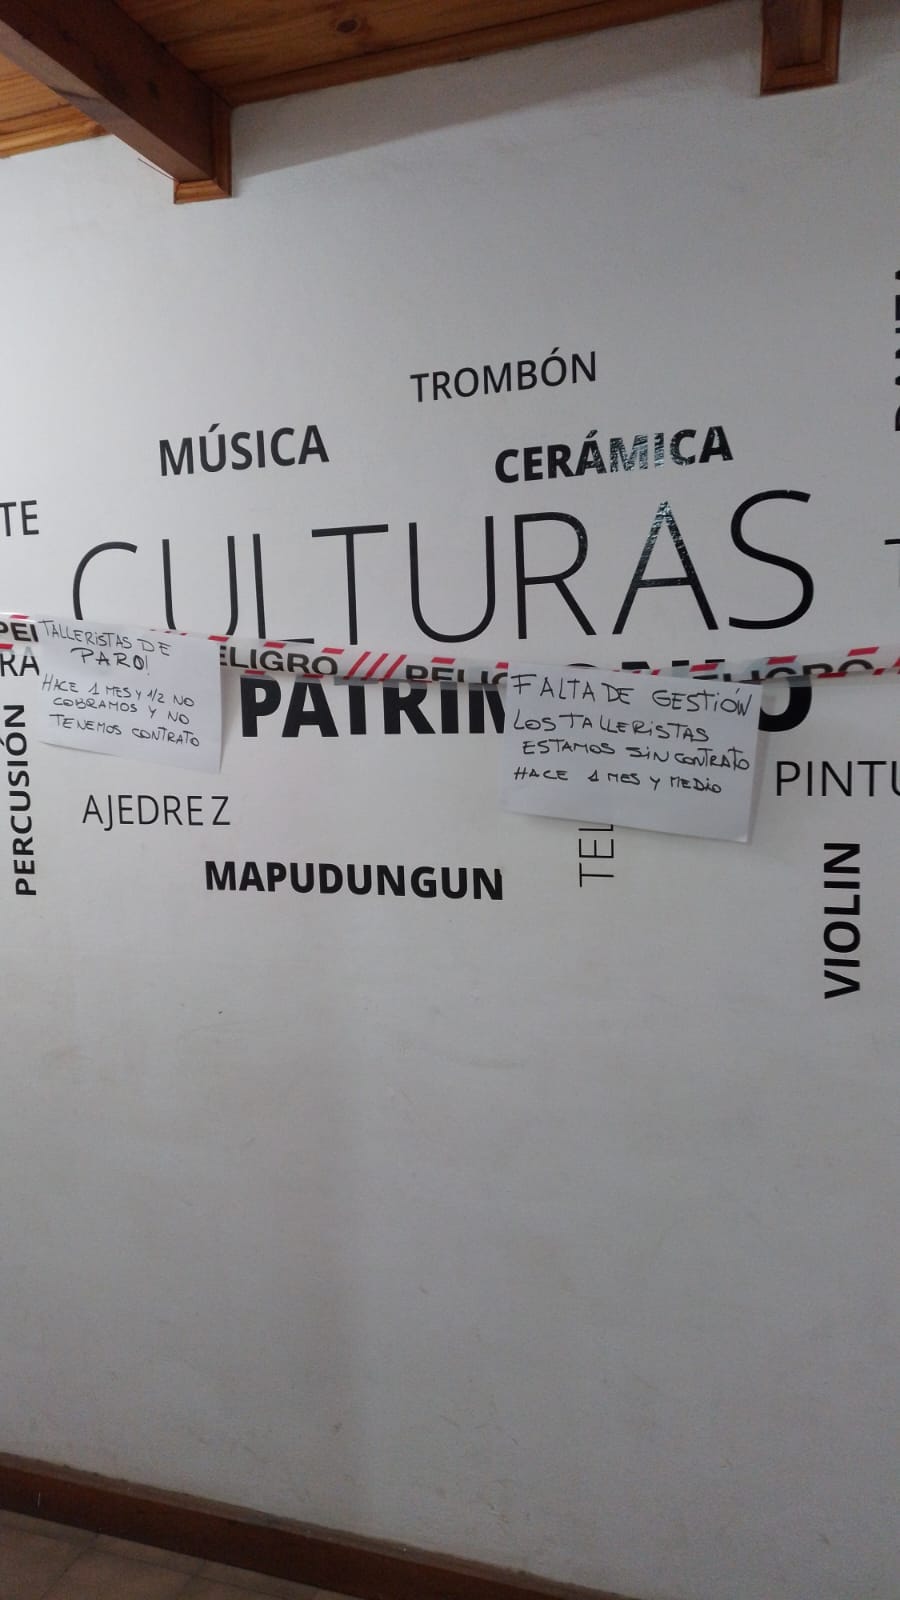 TROMBÓN
MÚSICA
CERÁMICA
TE
CULTURAS
PELIGRO /// PELIGRO
RA
PATRIMONIO
TALLERISTAS DE
PARO!
HACE 1 MES Y 1/2 NO
COBRAMOS Y NO
TENEMOS CONTRATO
FALTA DE GESTIÓN
LOS TALLERISTAS
ESTAMOS SIN CONTRATO
HACE 1 MES Y MEDIO
PERCUSIÓN
AJEDREZ
PINTU
MAPUDUNGUN
TEL
VIOLIN